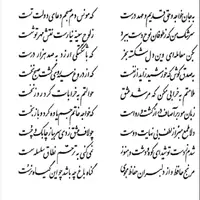 به جان خواجه و حق قدیم و عهد درست که مونس دم صبحم دعای دولت تست
سرشک من که ز طوفان نوح دست برد ز لوح سینه نیارست نقش مهر تو شست
بکن معامله‌ای وین دل شکسته بخر که با شکستگی ارزد به صد هزار درست
به صدق کوش که خورشید زاید از نفست که از دروغ سیه روی گشت صبح نخست
ملامتم به خرابی مکن که مرشد عشق حوالتم به خرابات کرد روز نخست
زبان مور به آصف دراز گشت و رواست که خواجه خاتم جم یاوه کرد و باز نجست
دلا طمع مبر از لطف بی‌نهایت دوست چو لاف عشق زدی سر بباز چابک و چست
شدم ز دست تو شیدای کوه و دشت و هنوز نمی‌کنی به ترحم نطاق سلسله سست
مرنج حافظ و از دلبران حفاظ مجوی گناه باغ چه باشد چو این گیاه نرست